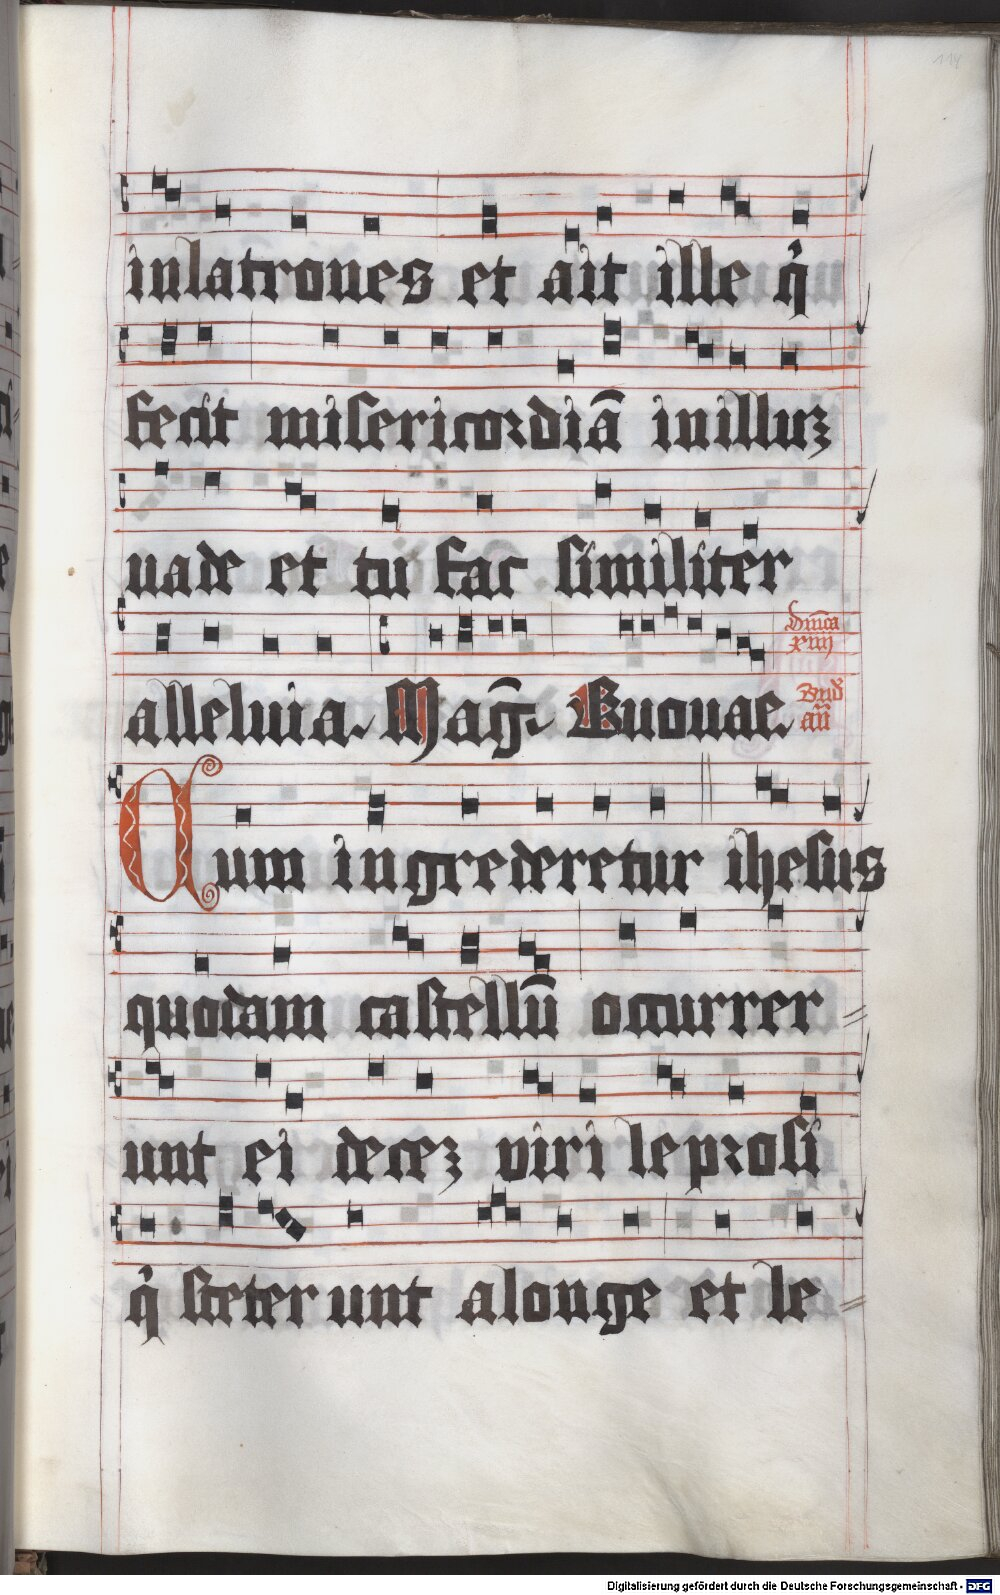 114
inlatrones et ait ille q̇
fecit misericordiā inilluꝫ
uade et tu fac similiter
dn̄ica
xiiij
alleluia. Mag̅. Euouae.
an̄
Cum ingrederetur ihesus
quodam castellū occurrer
unt ei deceꝫ viri leprosi
q̇ steterunt alonge et le
Digitalisierung gefördert durch die Deutsche Forschungsgemeinschaft - DFG